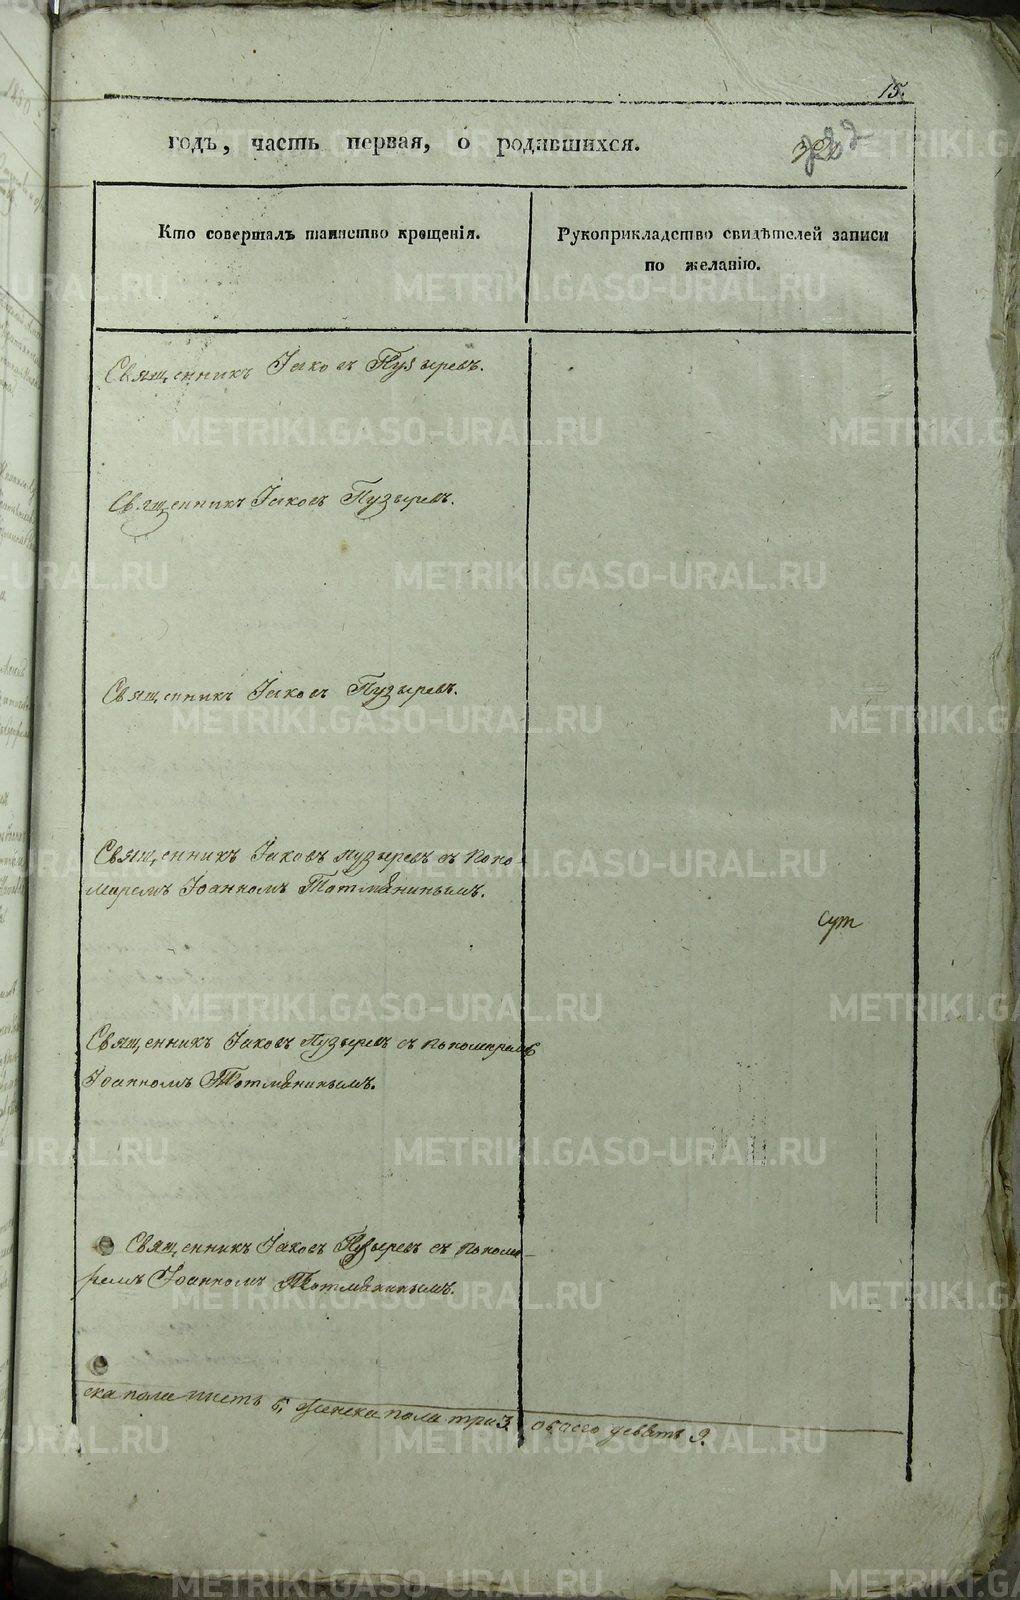 15.
годъ, часть первая, о родившихся.
Кто совершалъ таинство крещенія.
Рукоприкладство свидѣтелей записи
по желанію.
Священникъ Іаковъ Пузыревъ.
Священникъ Іаковъ Пузыревъ.
Священникъ Іаковъ Пузыревъ.
Священникъ Іаковъ Пузыревъ съ Поно-
маремъ Іоанномъ Тотмянинымъ.
Сут
Священникъ Іаковъ Пузыревъ съ Пономаремъ
Іоанномъ Тотмянинымъ.
Священникъ Іаковъ Пузыревъ съ Понома-
ремъ Іоанномъ Тотмянинымъ.
ска пола шесть 6, женска пола три 3. обоего девять 9.
METRIKI.GASO-URAL.RU